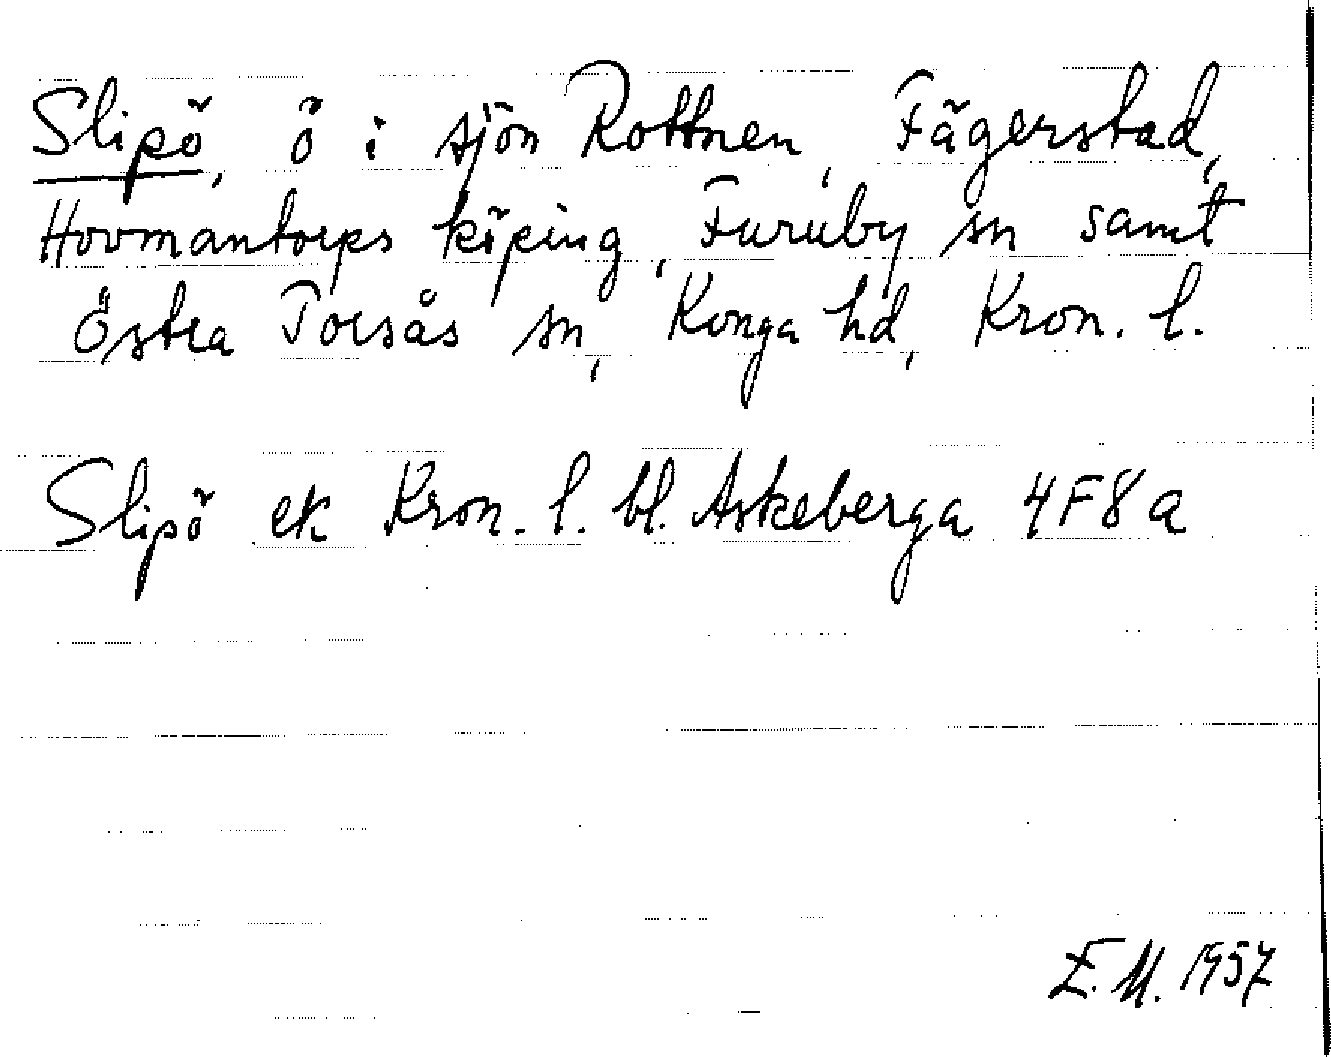 Slipö, ö i sjön Rottnen, Fägerstad,
Hovmantorps köping, Furuby sn samt
Östra Torsås sn, Konga hd, Kron. l.
Slipö ek Kron. l. bl. Askeberga 4F8a
E.M. 1957